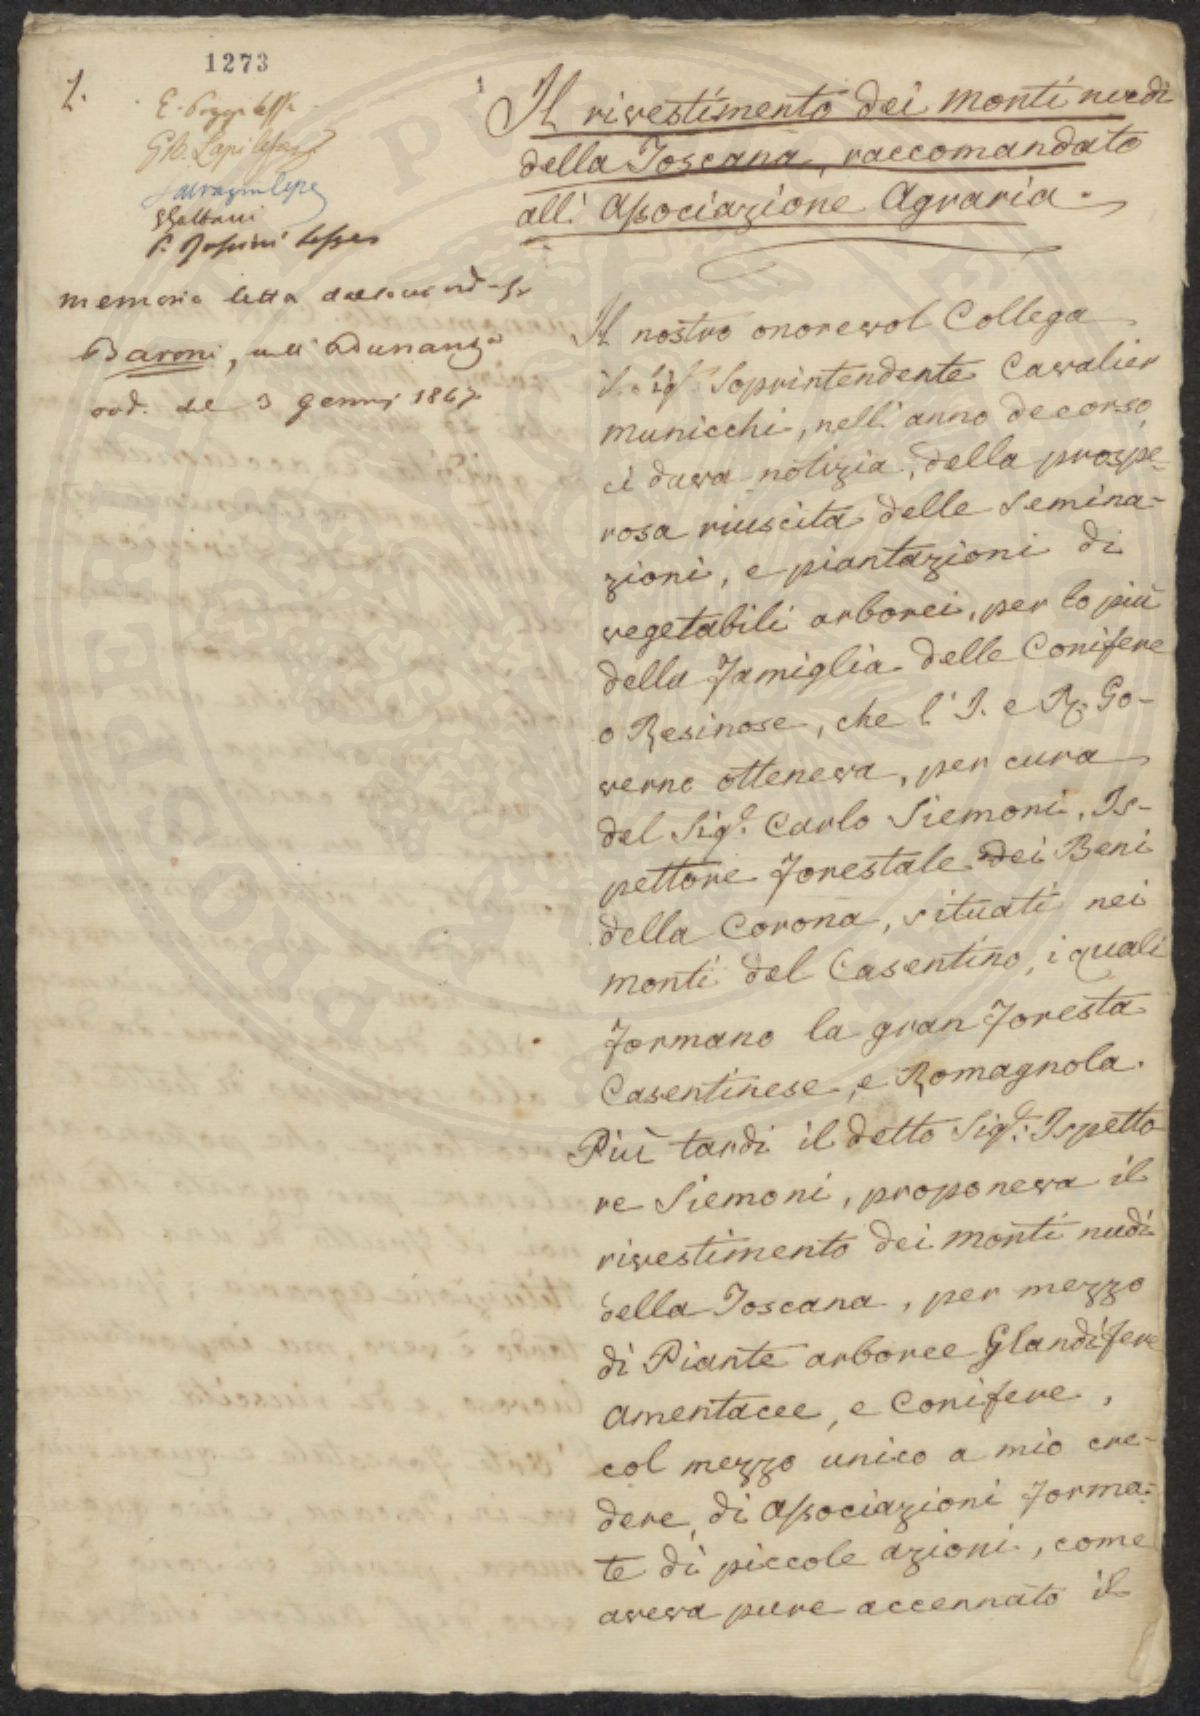 1273
1.
1
Il rivestimento dei monti nudi
della Toscana, raccomandato
all' Associazione Agraria.
E. Poggi lesse
Gb. Lapi lesse
lesse
P. lesse
memoria letta
Baroni, nell' Adunanza
ord. del 3 Genn: 1847
Il nostro onorevol Collega
il Sigr. Soprintendente Cavalier
Municchi, nell' anno decorso,
ci dava notizia, della prospe-
rosa riuscita delle Semina-
zioni, e piantazioni di
vegetabili arborei, per lo più
della famiglia delle Conifere
o Resinose, che l' I. e R. Go-
verno otteneva, per cura
del Sigr. Carlo Siemoni, Is-
pettore forestale dei Beni
della Corona, situati nei
monti del Casentino, i quali
formano la gran foresta
Casentinese, e Romagnola.
Più tardi il detto Sigr. Ispetto
re Siemoni, proponeva il
rivestimento dei monti nudi
della Toscana, per mezzo
di Piante arboree Glandifere
Amentacee, e Conifere,
col mezzo unico a mio cre-
dere, di Associazioni forma-
te di piccole azioni, come
aveva pure accennato il